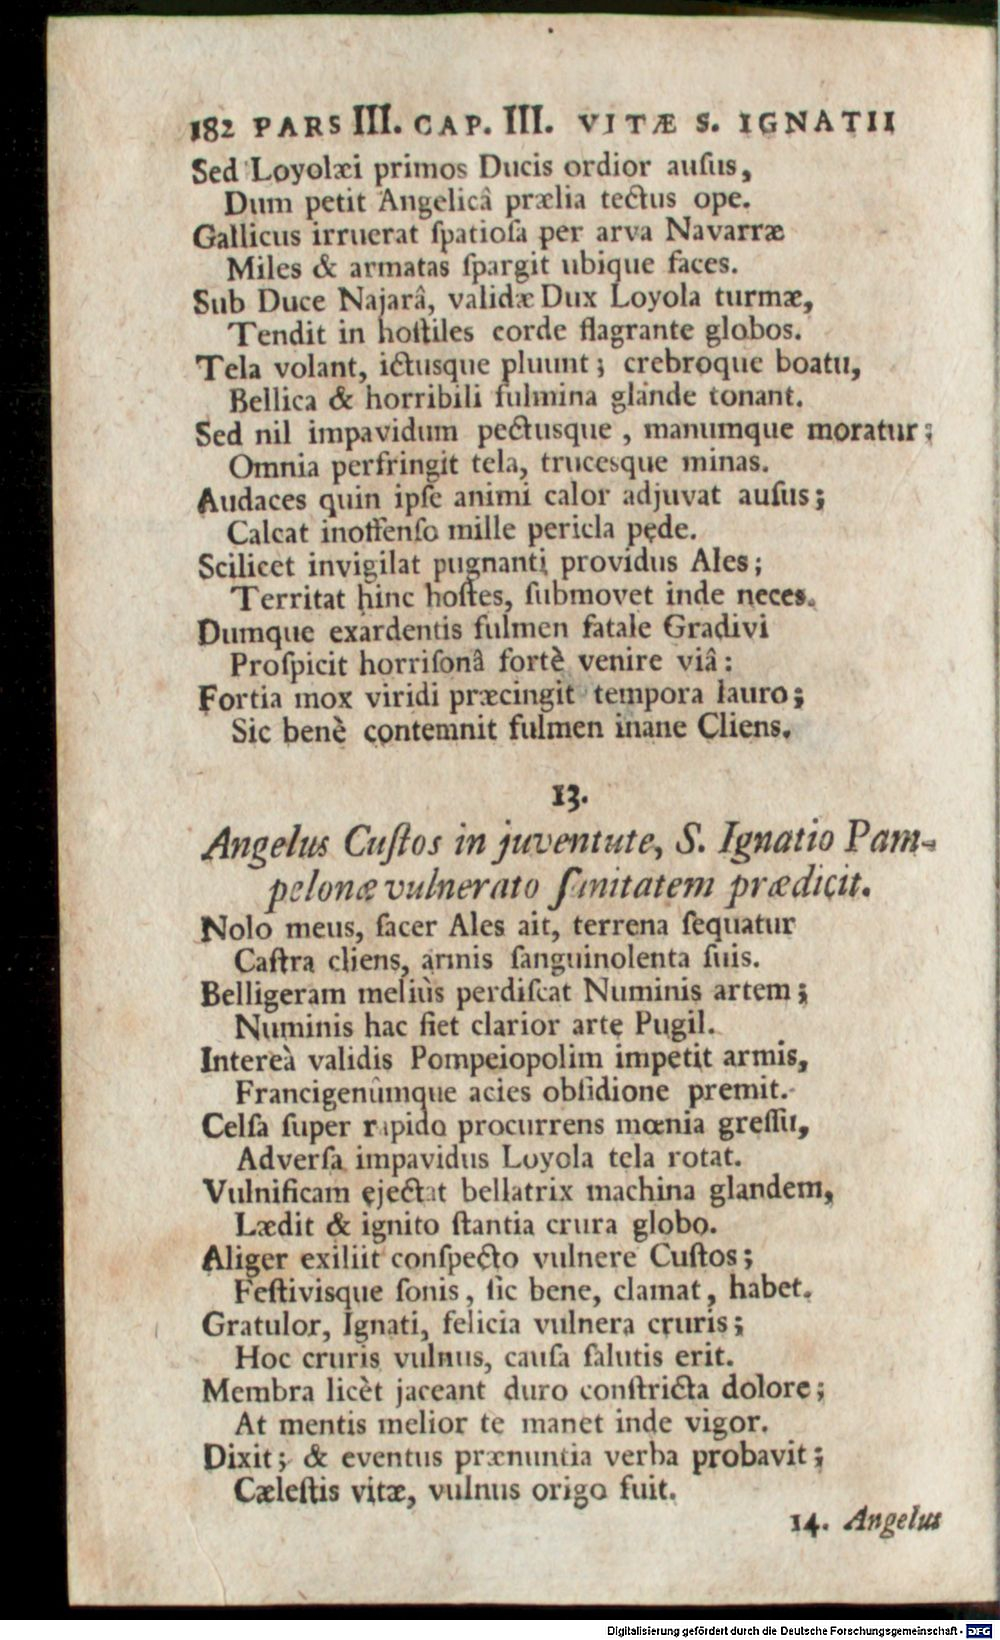 182 PARS III. CAP. III. VITÆ S. IGNATII
Sed Loyolæi primos Ducis ordior auſus,
Dum petit Angelicâ prælia tectus ope.
Gallicus irruerat ſpatioſa per arva Navarræ
Miles & armatas ſpargit ubique faces.
Sub Duce Najarâ, validæ Dux Loyola turmæ,
Tendit in hoſtiles corde flagrante globos.
Tela volant, ictusque pluunt; crebroque boatu,
Bellica & horribili fulmina glande tonant.
Sed nil impavidum pectusque, manumque moratur;
Omnia perfringit tela, trucesque minas.
Audaces quin ipſe animi calor adjuvat auſus;
Calcat inoffenſo mille pericla pede.
Scilicet invigilat pugnanti providus Ales;
Territat hinc hoſtes, ſubmovet inde neces.
Dumque exardentis fulmen fatale Gradivi
Proſpicit horriſonâ fortè venire viâ:
Fortia mox viridi præcingit tempora lauro;
Sic benè contemnit fulmen inane Cliens.
13.
Angelus Cuſtos in juventute, S. Ignatio Pam-
pelonæ vulnerato ſanitatem prædicit.
Nolo meus, ſacer Ales ait, terrena ſequatur
Caſtra cliens, armis ſanguinolenta ſuis.
Belligeram meliùs perdiſcat Numinis artem;
Numinis hac fiet clarior arte Pugil.
Intereà validis Pompeiopolim impetit armis,
Francigenûmque acies obſidione premit.
Celſa ſuper rapido procurrens mœnia greſſu,
Adverſa impavidus Loyola tela rotat.
Vulnificam ejectat bellatrix machina glandem,
Lædit & ignito ſtantia crura globo.
Aliger exiliit conſpecto vulnere Cuſtos;
Feſtivisque ſonis, ſic bene, clamat, habet.
Gratulor, Ignati, felicia vulnera cruris;
Hoc cruris vulnus, cauſa ſalutis erit.
Membra licèt jaceant duro conſtricta dolore;
At mentis melior te manet inde vigor.
Dixit; & eventus prænuntia verba probavit;
Cæleſtis vitæ, vulnus origo fuit.
14. Angelus
Digitalisierung gefördert durch die Deutsche Forschungsgemeinschaft - DFG